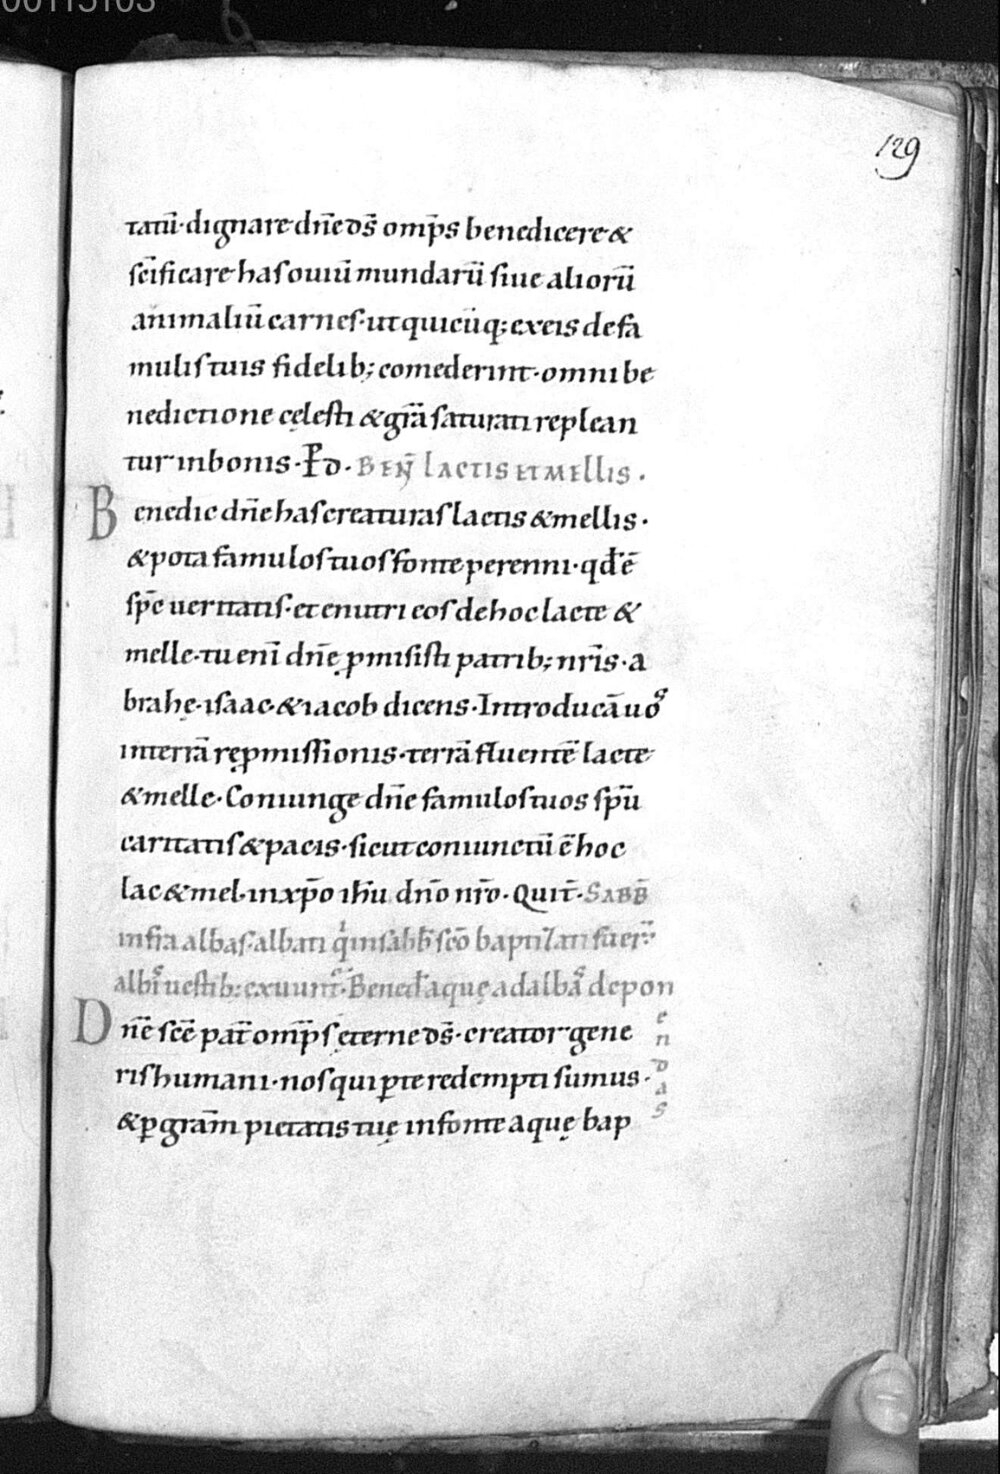 00115103
129
tatū·dignare dn̄e ds̄ omp̄s benedicere &
sc̄ificare has ouiū mundarū siue aliorū
animaliū carnes·ut quicūq; ex eis de fa
mulis tuis fidelib; comederint·omni be
nedictione cęlesti & gr̄a saturati replean
tur in bonis· P̄d· BEN̄ LACTIS ET MELLIS.
Benedic dn̄e has creaturas lactis & mellis·
& pota famulos tuos fonte perenni·qđ ē
sp̄c ueritatis·et enutri eos de hoc lacte &
melle·tu eni̅ dn̄ę ꝓmisisti patrib; nr̄is·a
brahę·isaac·& iacob dicens·Introducā uos
in terrā rępmissionis·terrā fluentē lacte
& melle·Coniunge dn̄e famulos tuos sp̄u
caritatis & pacis·sicut coniunctū ē hoc
lac & mel·in xp̄o ih̄u dn̄o nr̄o·Quit̄·SABB̄
infra albas·albati
uestib; exuunt̄·Bened̄ aquę ad albas depon
endas
Dn̄e sc̄e pat̄ omp̄s ęterne ds̄·creator gene
ris humani·nos qui ꝑ te redempti sumus·
& ꝑ gram̄ pietatis tuę in fonte aquę bap